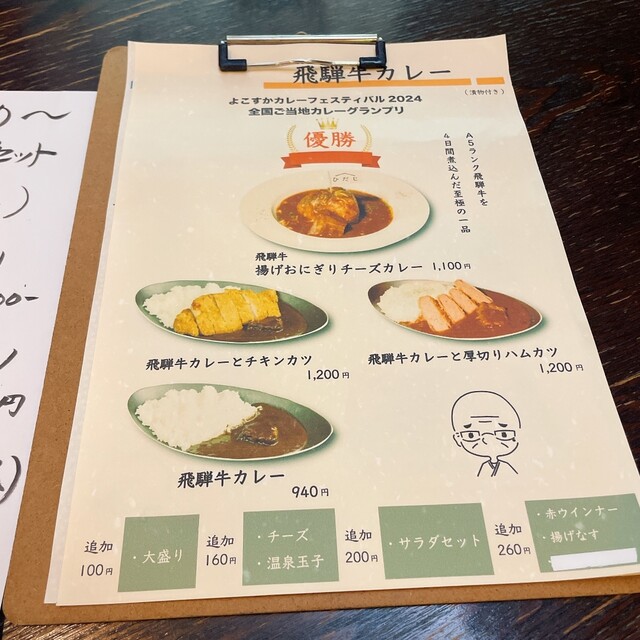 飛騨牛カレー
(漬物付き)
よこすかカレーフェスティバル2024
全国ご当地カレーグランプリ
優勝
A5ランク飛騨牛を
4日間煮込んだ至極の一品
ひだじ
飛騨牛
揚げおにぎりチーズカレー 1,100円
飛騨牛カレーとチキンカツ
1,200円
飛騨牛カレーと厚切りハムカツ
1,200円
飛騨牛カレー
940円
追加
100円
・大盛り
追加
160円
・チーズ
・温泉玉子
追加
200円
・サラダセット
追加
260円
・赤ウインナー
・揚げなす
セット
円